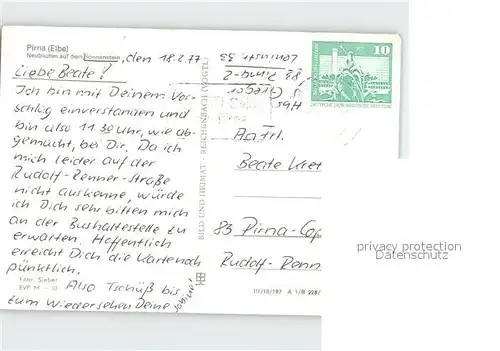 Pirna (Elbe)
Neubauten auf dem Sonnenstein
, den 18.2.77
Liebe Beate!
Ich bin mit Deinem Vor-
schlag einverstanden und
bin also 11.30 Uhr, wie ab-
gemacht, bei Dir. Da ich
mich leider auf der
Rudolf-Renner-Straße
nicht auskenne, würde
ich Dich sehr bitten mich
an der Bushaltestelle zu
erwarten. Hoffentlich
erreicht Dich die Karte noch
pünktlich.
Also Tschüß bis
zum Wiedersehen Deine
Sabine
Foto: Sieber
EVP M -.10
BILD UND HEIMAT · REICHENBACH (VOGTL)
10
DEUTSCHE DEMOKRATISCHE REPUBLIK
83 Pirna-2
Beate
83 Pirna-Cop
Rudolf-Renn
III/18/197 A 1/B 228/
privacy protection
Datenschutz